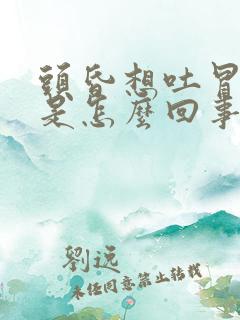 頭昏想吐冒
是怎麼回事
劉远
未经同意禁止转载